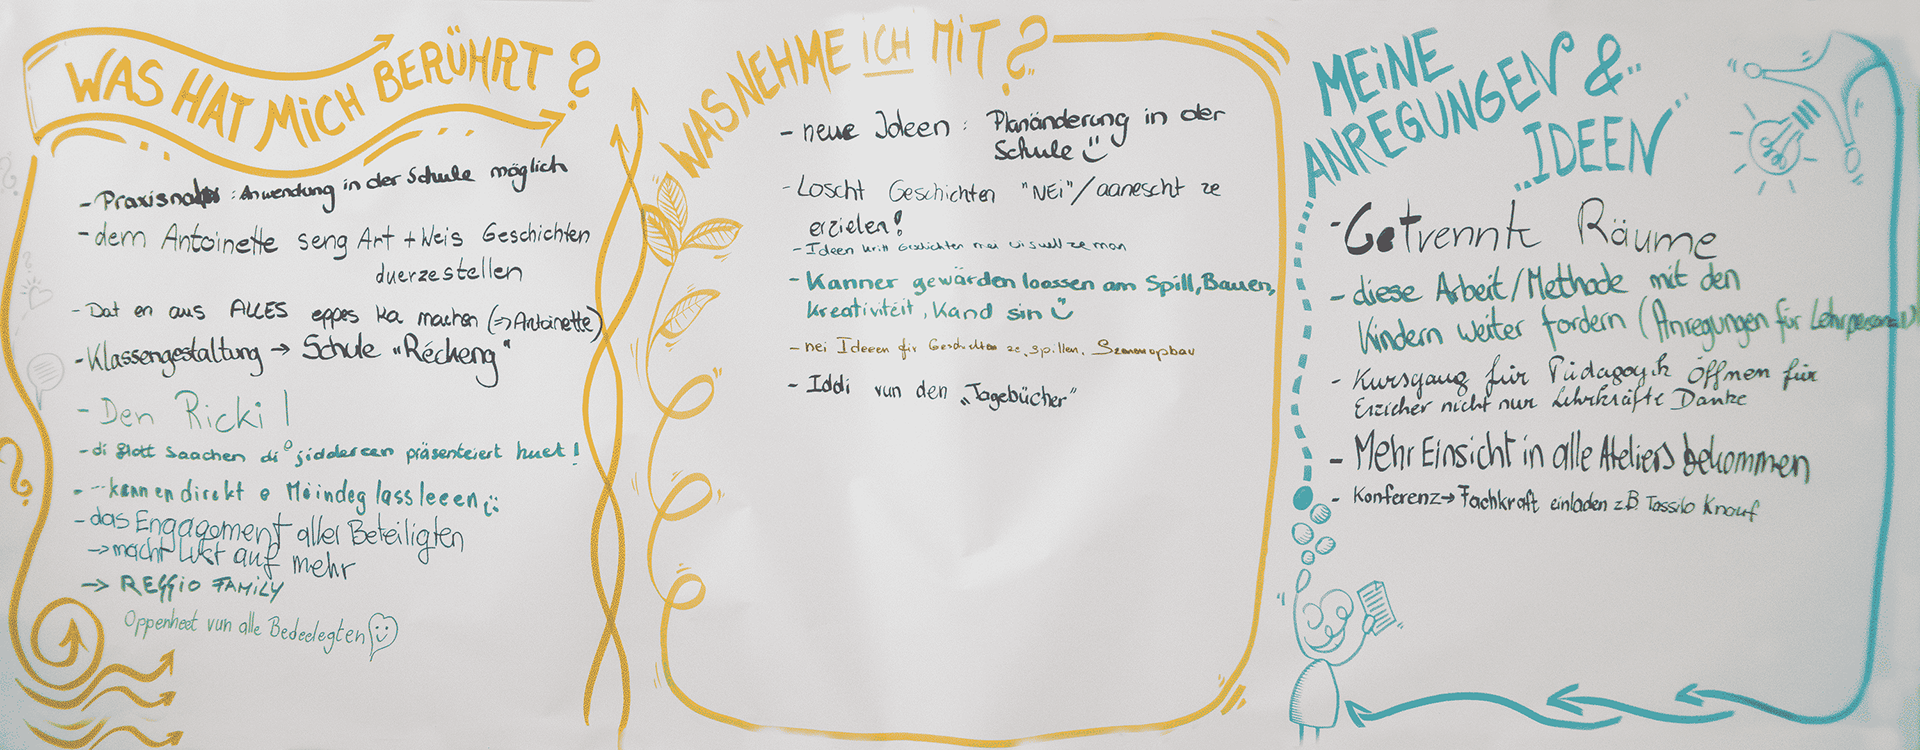 WAS HAT MICH BERÜHRT?
- Praxisnah : Anwendung in der Schule möglich
- dem Antoinette seng Art + Weis Geschichten
duerzestellen
- Dat en aus ALLES eppes ka machen (=> Antoinette)
- Klassengestaltung → Schule "Récheng"
- Den Ricki !
- di flott Saachen di jiddereen präsenteiert huet!
direkt
- das Engagement aller Beteiligten
→ macht Lust auf mehr
→ REGGIO FAMILY
Oppenheet vun alle Bedeelegten
WAS NEHME ICH MIT?
- neue Ideen : Planänderung in der
Schule
- Loscht Geschichten "NEI"/aanescht ze
erzielen!
- Ideen
- Kanner gewärden loossen am Spill, Bauen,
Kreativitéit, Kand sin
- nei Ideeen fir Geschichten ze spillen, Szenenopbau
- Iddi vun den "Tagebücher"
MEINE
ANREGUNGEN &
IDEEN
- Getrennte Räume
- diese Arbeit/Methode mit den
Kindern weiter fordern (Anregungen für Lehrpersonal)
- Kursgang für Pädagogik öffnen für
Erzieher nicht nur Lehrkräfte Danke
- Mehr Einsicht in alle Ateliers bekommen
- Konferenz → Fachkraft einladen z.B Tassilo Knauf